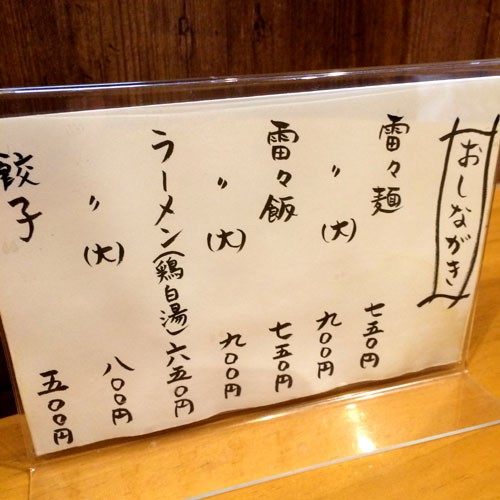 おしながき
雷々麺 七五〇円
〃 (大) 九〇〇円
雷々飯 七五〇円
〃 (大) 九〇〇円
ラーメン(鶏白湯) 六五〇円
〃 (大) 八〇〇円
餃子 五〇〇円